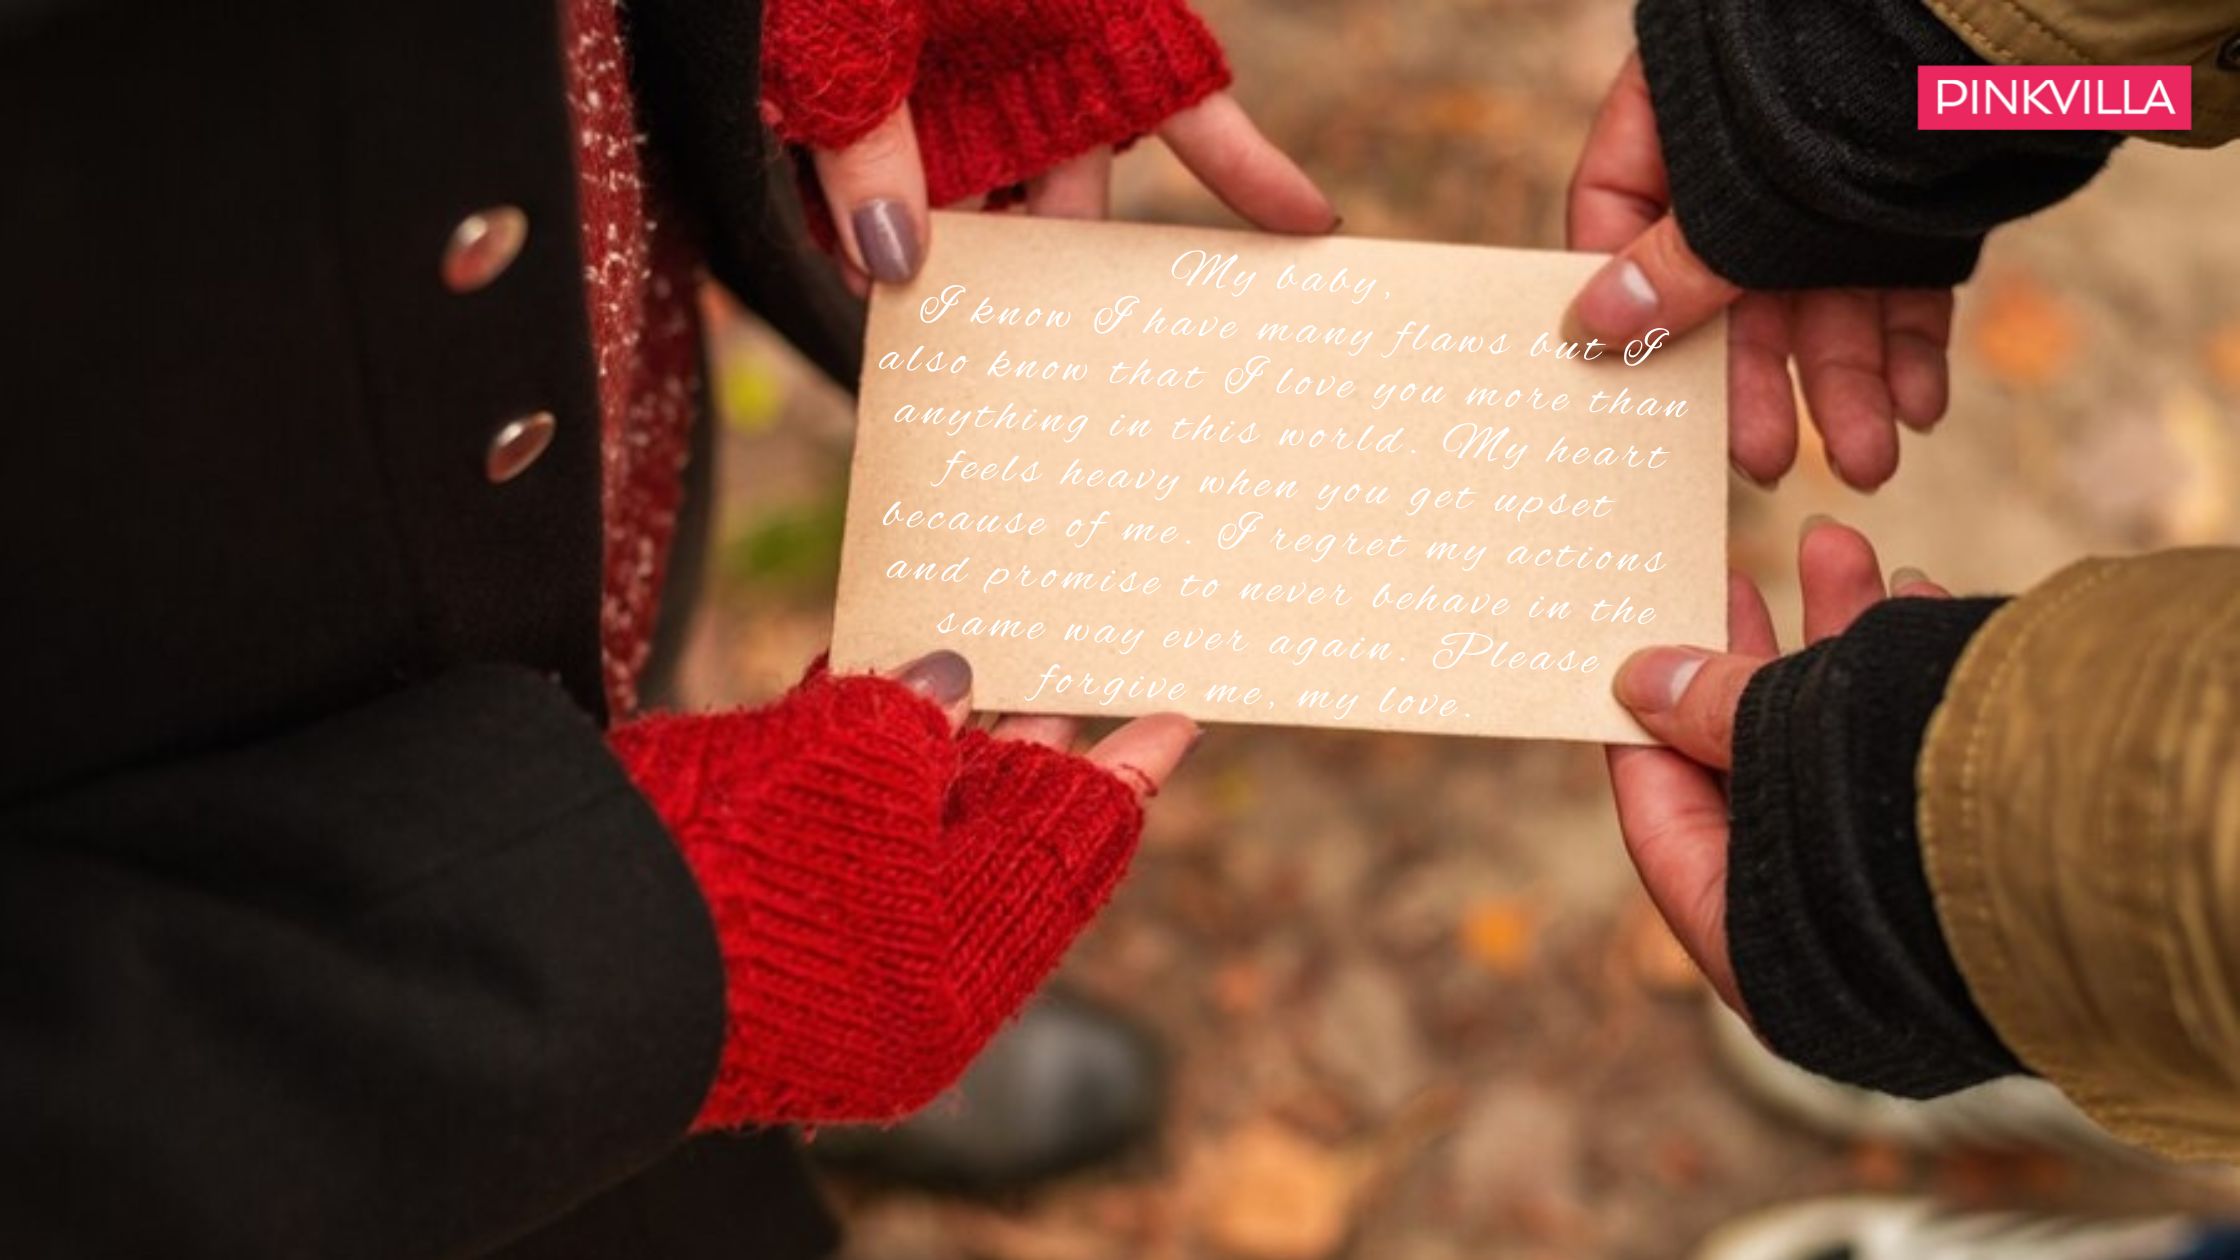 PINKVILLA
My baby,
I know I have many flaws but I
also know that I love you more than
anything in this world. My heart
feels heavy when you get upset
because of me. I regret my actions
and promise to never behave in the
same way ever again. Please
forgive me, my love.